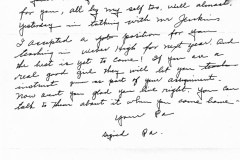 for you, all by my self too. Well almost.
Yesterday in talking with Mr Jenkins
I accepted a position for you
teaching in High for next year. And
the best is yet to come! If you are a
real good girl they will let you teach
instrument as part of your assignment.
Now aint you glad you lived right. You can
talk to them about it when you come home -
Your Pa
Pa.